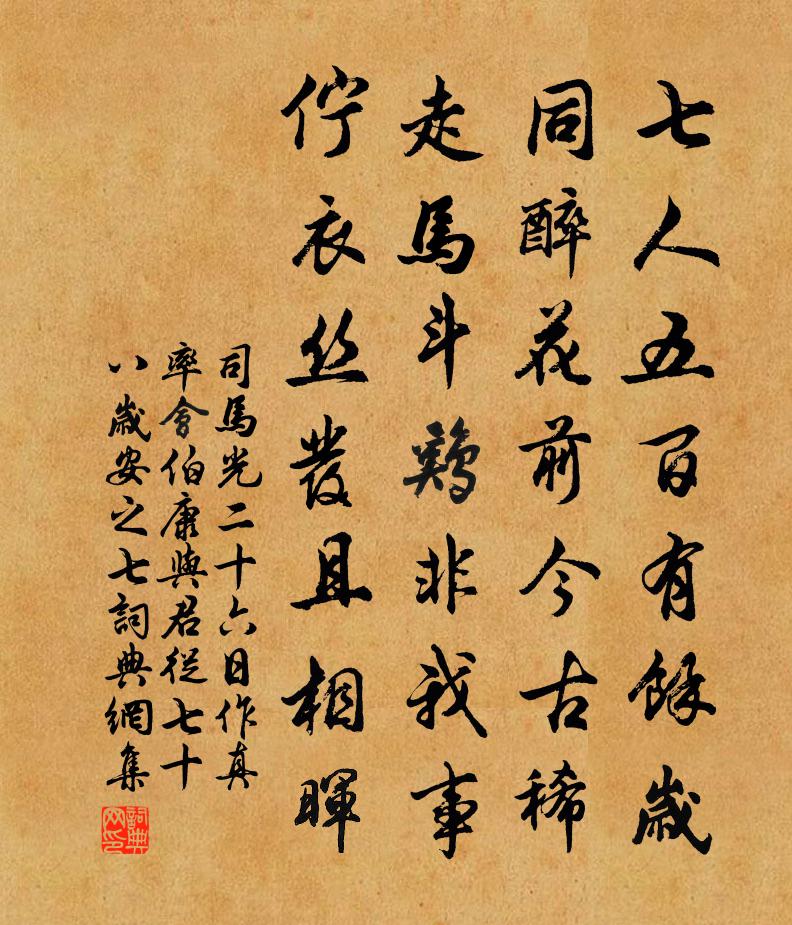 七人五百有餘歲
同醉花前今古稀
走馬斗鷄非我事
佇衣丝發且相暉
司馬光二十六日作真
率會伯康與君從七十
八歲安之七詞典網集
詞典
网印